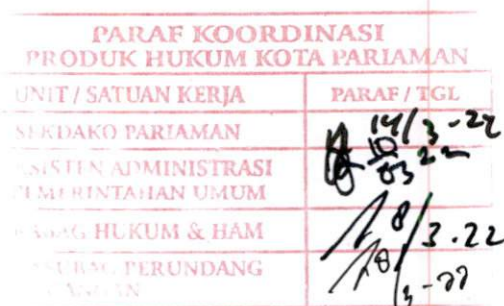 PARAF KOORDINASI
PRODUK HUKUM KOTA PARIAMAN
UNIT / SATUAN KERJA PARAF / TGL
SEKDAKO PARIAMAN 14/3-22
ASISTEN ADMINISTRASI
PEMERINTAHAN UMUM 10 03 22
KABAG HUKUM & HAM 8/3.22
KASUBAG PERUNDANG
8/3-22